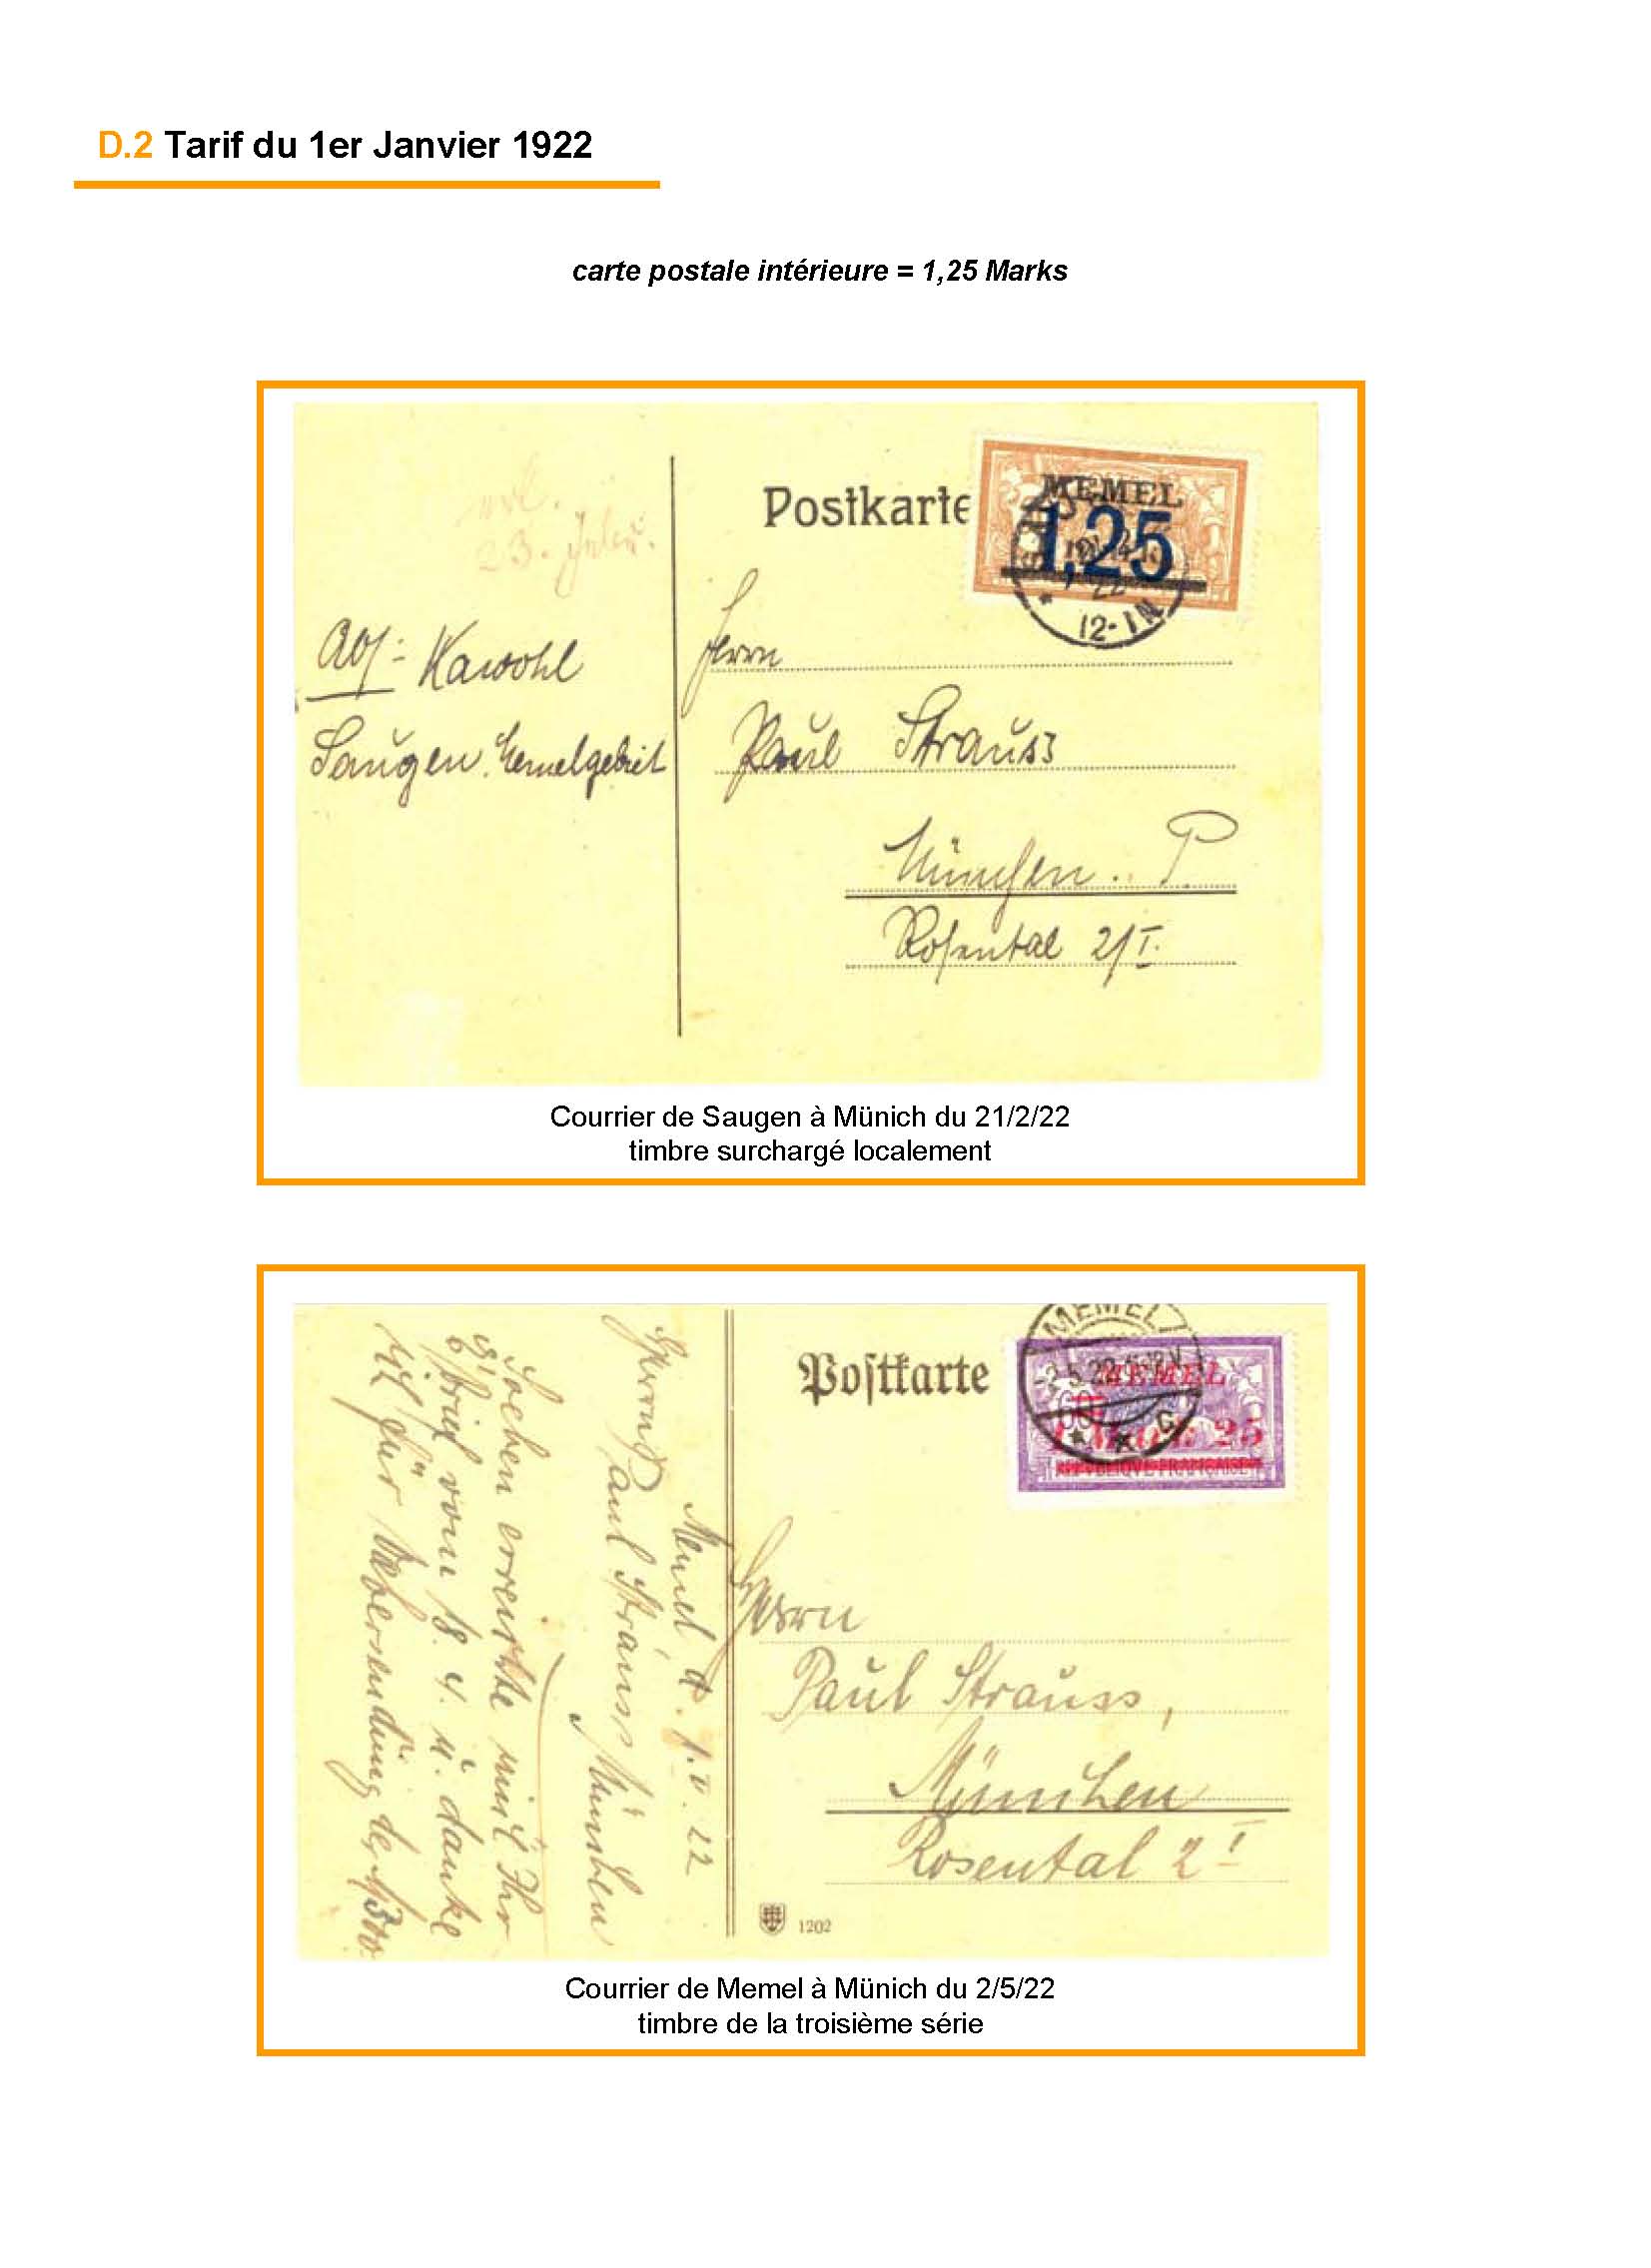 D.2 Tarif du 1er Janvier 1922
carte postale intérieure = 1,25 Marks
23.
Postkarte
MEMEL
1,25
22
12-1N
Abs: Kawohl
Saugen. Memelgebiet
Herrn
Paul Strauss
München.
Rosental 2/I.
Courrier de Saugen à Münich du 21/2/22
timbre surchargé localement
Memel d. 1.V.22
Herrn Paul Strauss München
Soeben erreichte mich Ihr
Brief vom 18.4. u. danke
für Uebersendung
Postkarte
MEMEL
-2.5.22
MEMEL
60
1 Mark 25
REPUBLIQUE FRANÇAISE
Herrn
Paul Strauss,
München
Rosental 2 I
1202
Courrier de Memel à Münich du 2/5/22
timbre de la troisième série